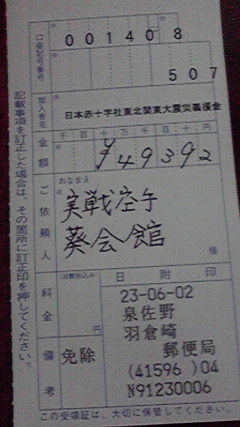 口座記号番号
00140 8
507
加入者名
日本赤十字社東北関東大震災義援金
金額
千 百 十 万 千 百 十 円
¥49392
ご依頼人
おなまえ
実戦空手
葵会館
様
料金
(消費税込み)
円
日附印
23-06-02
泉佐野
羽倉崎
郵便局
(41596 )04
N91230006
備考
免除
記載事項を訂正した場合は、その箇所に訂正印を押してください。
この受領証は、大切に保管してください。